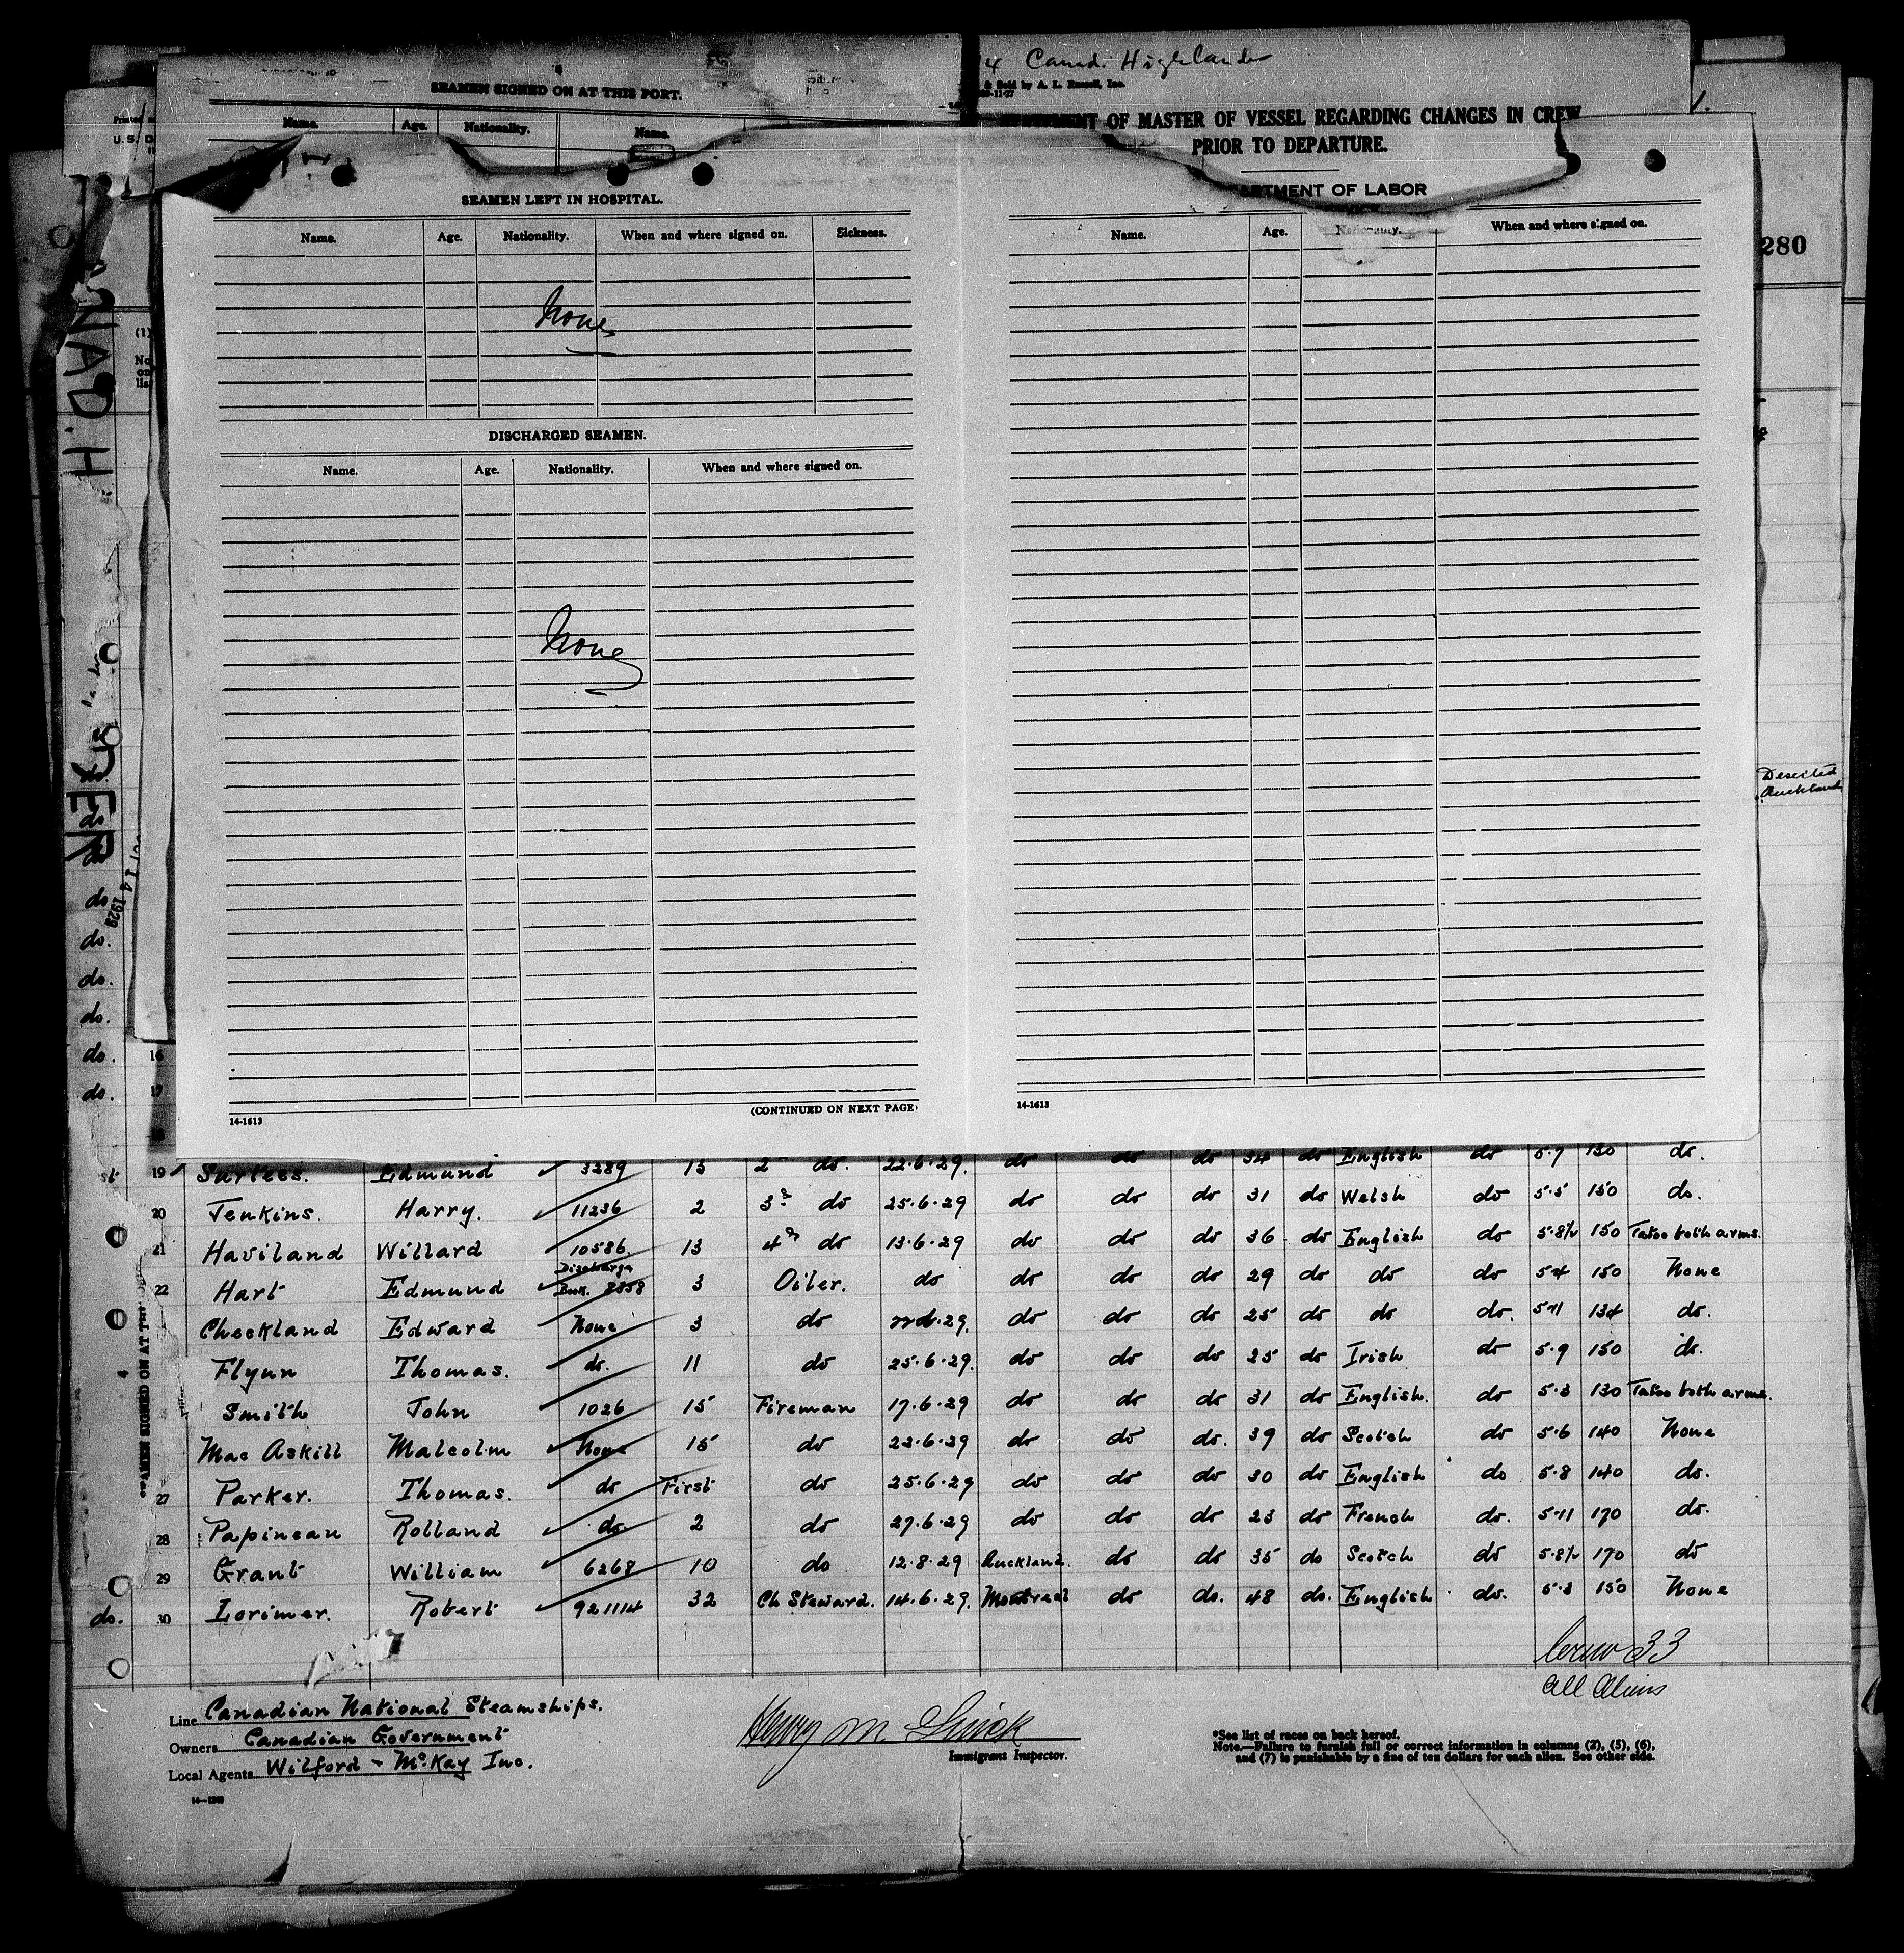 14 Canad. Highlander
& Sold by A. L. Russell, Inc.
SEAMEN SIGNED ON AT THIS PORT.
Name. Age. Nationality. Name.
OF MASTER OF VESSEL REGARDING CHANGES IN CREW
PRIOR TO DEPARTURE.
OF LABOR
1.
280
SEAMEN LEFT IN HOSPITAL.
Name. Age. Nationality. When and where signed on. Sickness.
None
DISCHARGED SEAMEN.
Name. Age. Nationality. When and where signed on.
None
14-1613 (CONTINUED ON NEXT PAGE)
Name. Age. Nationality. When and where signed on.
14-1613
Deserted
Auckland
do
do.
do.
do.
do.
do.
16
17
18
19 Surtees. Edmund 3289 13 2 do. 22.6.29. do do do 34 do English do 5.7 130 do.
20 Jenkins. Harry. 11236 2 3 do 25.6.29 do do do 31 do Welsh do 5.5 150 do.
21 Haviland Willard 10586. 13 4 do 13.6.29 do do do 36 do English do 5.8½ 150 Tatoo both arms.
22 Hart Edmund Discharge Book. 8358 3 Oiler. do do do do 29 do do do 5.4 150 None
Checkland Edward None 3 do do do do 25 do do do. 5.11 134 do.
Flynn Thomas. do. 11 do 25.6.29. do do do 25 do Irish do 5.9 150 do.
Smith John 1026 15 Fireman 17.6.29 do do do 31 do English. do 5.3 130 Tatoo both arms.
Mac Askill Malcolm None 15 do 22.6.29 do do do. 39 do Scotch do 5.6 140 None
27 Parker. Thomas. do First do 25.6.29 do do do 30 do English do 5.8 140 do.
28 Papineau Rolland do. 2 do 27.6.29 do do do 23 do French do. 5.11 170 do.
29 Grant William 6268 10 do 12.8.29 Auckland. do do 35 do Scotch do 5.8½ 170 do
do. 30 Lorimer. Robert 921114 32 Ch Steward. 14.6.29. Montreal do do. 48 do. English do. 5.3 150 None
Crew 33
all Aliens
Line Canadian National Steamships.
Owners Canadian Government
Local Agents Wilford - McKay Inc.
Immigrant Inspector.
*See list of races on back hereof.
Note.—Failure to furnish full or correct information in columns (2), (5), (6),
and (7) is punishable by a fine of ten dollars for each alien. See other side.